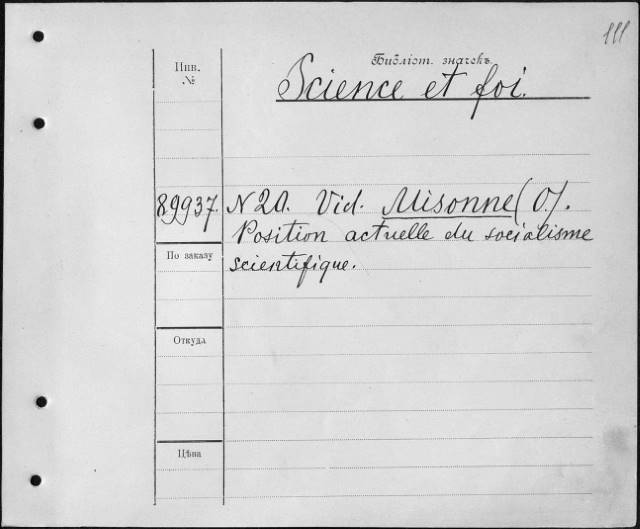 111
Библіот. значекъ
Инв.
№
Science et foi.
89937. N 20. Vid. Misonne (O.).
Position actuelle du socialisme
По заказу
scientifique.
Откуда
Цѣна